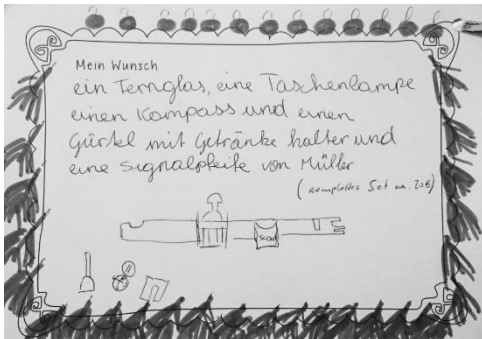 Mein Wunsch
ein Fernglas, eine Taschenlampe
einen Kompass und einen
Gürtel mit Getränke halter und
eine Signalpfeife von Müller
(komplettes Set ca. 20€)
Scout